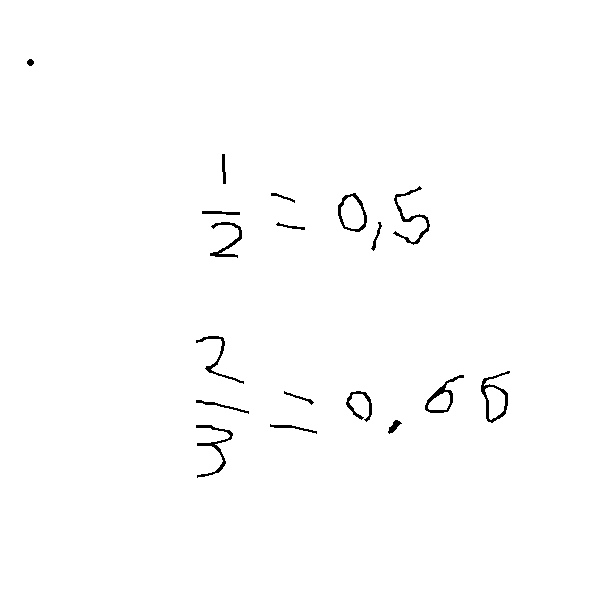 1/2 = 0,5
2/3 = 0.66